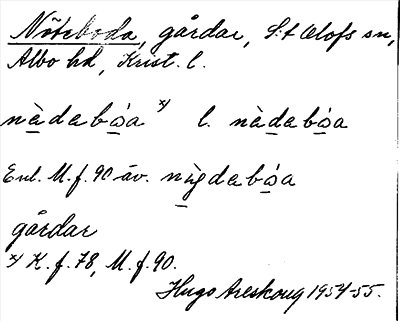 Nöteboda, gårdar, S:t Olofs sn,
Albo hd, Krist. l.
nèdabóa x) l. nèdabóa
Enl. M. f. 90 äv. nìgdabóa
gårdar
x) K. f. 78, M. f. 90.
Hugo Areskoug 1954-55.